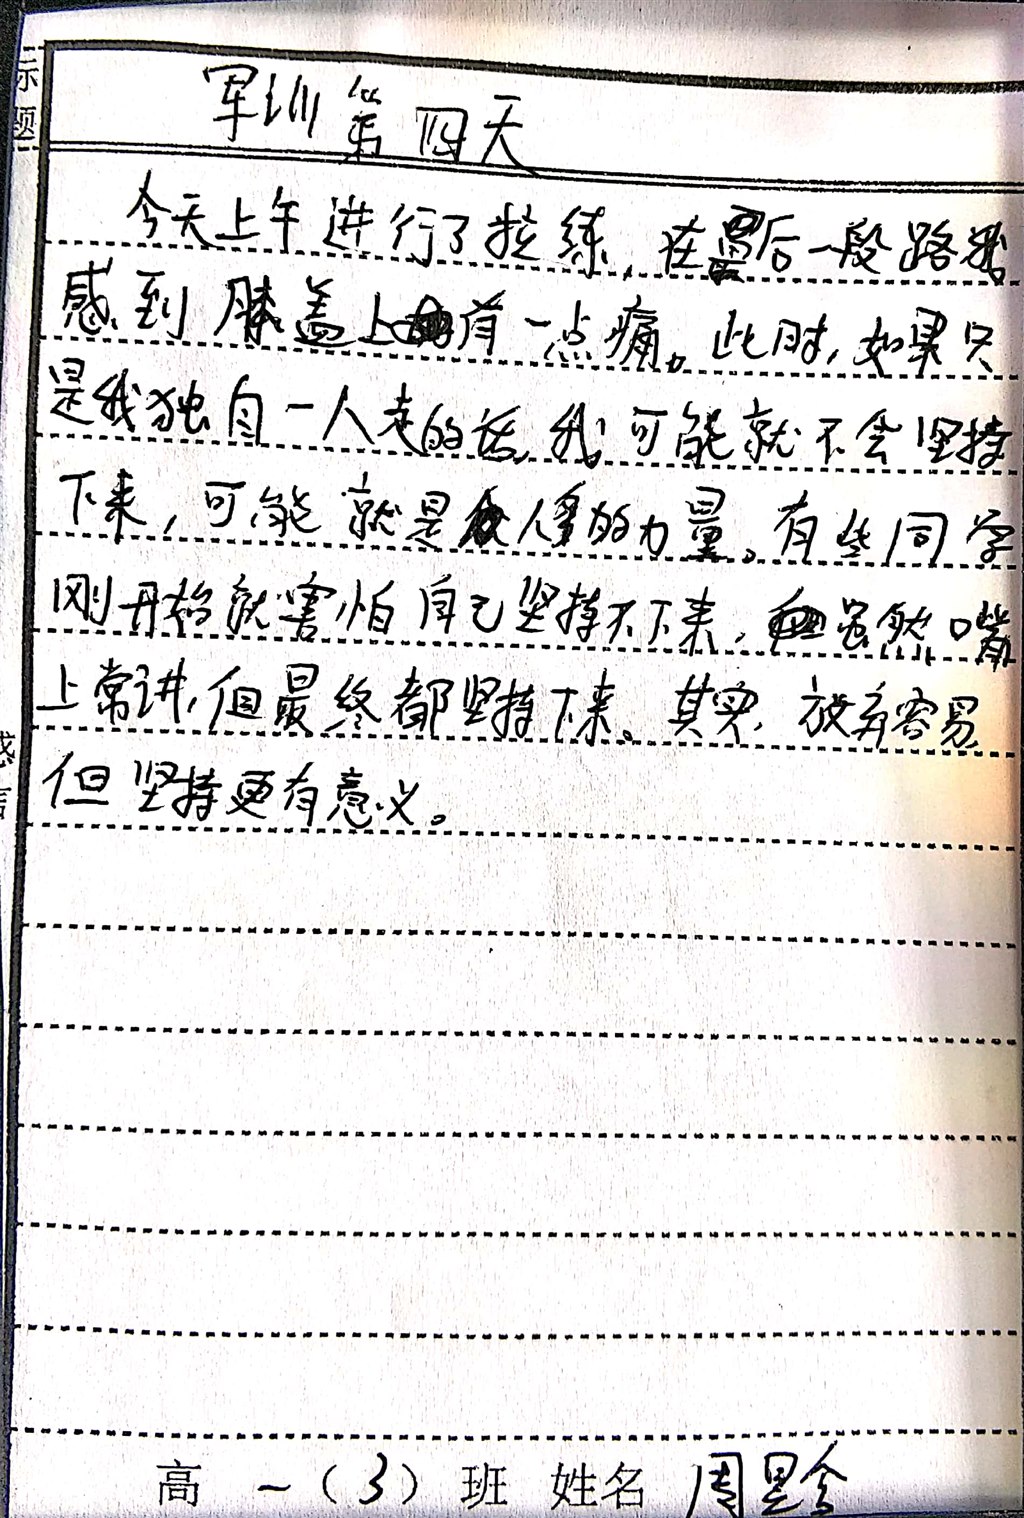 标题
军训第四天
今天上午进行了拉练,在最后一段路我
感到膝盖上有一点痛。此时,如果只
是我独自一人走的话,我可能就不会坚持
下来,可能就是人多的力量。有些同学
刚开始就害怕自己坚持不下来,虽然嘴
上常讲,但最终都坚持下来。其实,放弃容易
但坚持更有意义。
感言
高一(3)班 姓名 周